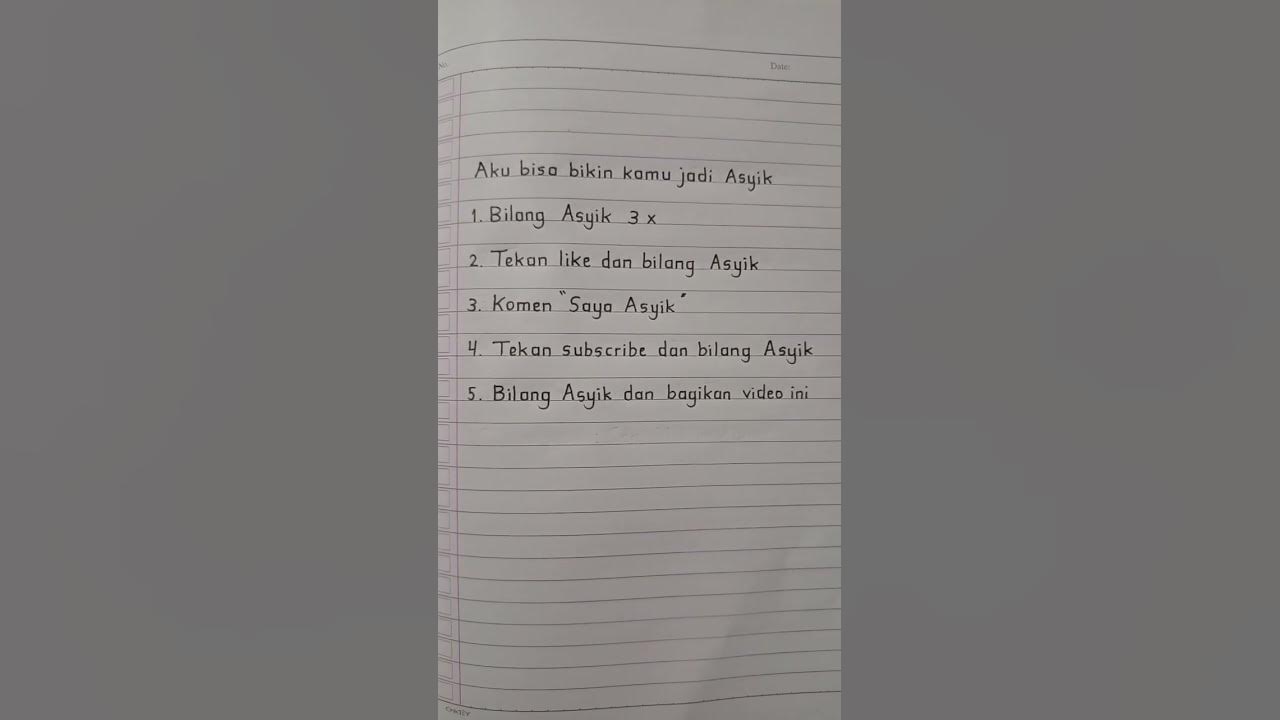 No
Date:
Aku bisa bikin kamu jadi Asyik
1. Bilang Asyik 3 x
2. Tekan like dan bilang Asyik
3. Komen "Saya Asyik"
4. Tekan subscribe dan bilang Asyik
5. Bilang Asyik dan bagikan video ini